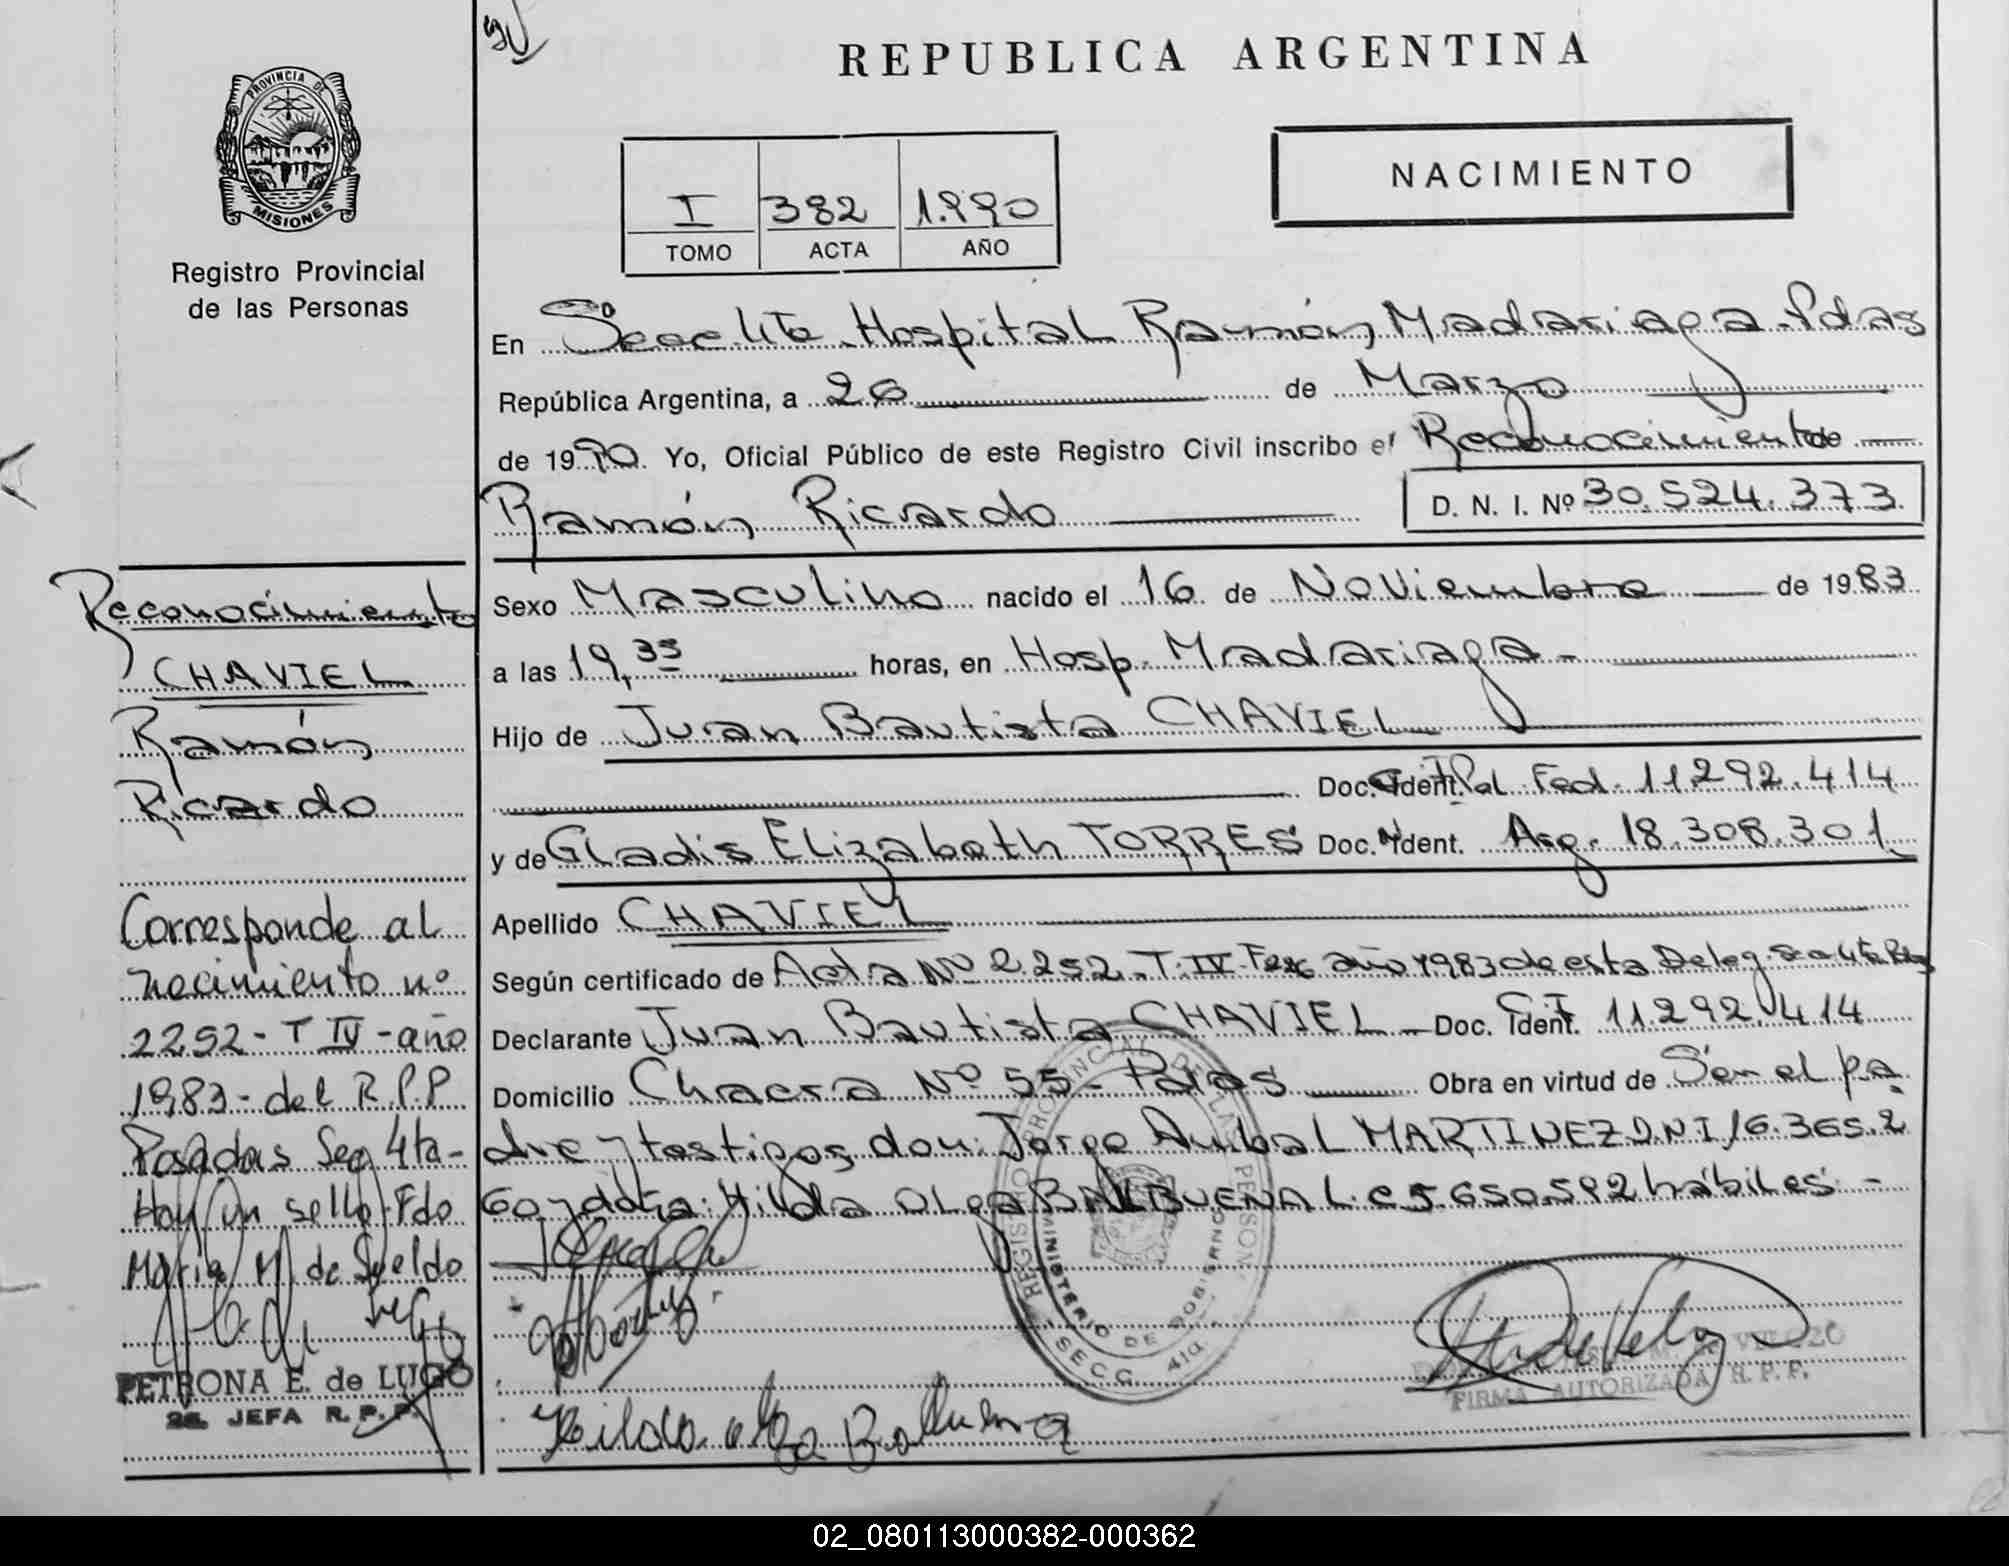 REPUBLICA ARGENTINA
PROVINCIA DE
MISIONES
Registro Provincial
de las Personas
NACIMIENTO
I 382 1.990
TOMO ACTA AÑO
En Secc 4ta Hospital Ramón Madariaga - Pdas
República Argentina, a 26 de Marzo
de 1990. Yo, Oficial Público de este Registro Civil inscribo el Reconocimiento de
Ramón Ricardo D. N. I. Nº 30.524.373.
Sexo Masculino nacido el 16 de Noviembre de 1983
a las 19,35 horas, en Hosp. Madariaga -
Hijo de Juan Bautista CHAVIEL
Doc. Ident. Pol. Fed. 11.292.414
y de Gladis Elizabeth TORRES Doc. Ident. Arg. 18.308.301
Apellido CHAVIEL
Según certificado de Acta Nº 2252 - T. IV - año 1983 de esta Deleg. Secc 4ta
Declarante Juan Bautista CHAVIEL - Doc. Ident. C.I 11.292.414
Domicilio Chacra Nº 55 - Pdas Obra en virtud de Ser el pa
dre y testigos don: Jorge Anibal MARTINEZ D.N.I 16.365.2
60 y doña: Hilda Olga BALBUENA L.C 5.650.592 hábiles -
Hilda Olga Balbuena
REGISTRO PROVINCIAL DE LAS PERSONAS
MINISTERIO DE GOBIERNO
SECC. 4ta.
VELOZO
FIRMA AUTORIZADA R. P. P.
Reconocimiento
CHAVIEL
Ramón
Ricardo
Corresponde al
nacimiento nº
2252 - T IV - año
1983 - del R.P.P
Posadas Secc 4ta -
Hay un sello - Fdo
Maria M. de Sueldo
PETRONA E. de LUGO
2a. JEFA R. P. P.
02_080113000382-000362